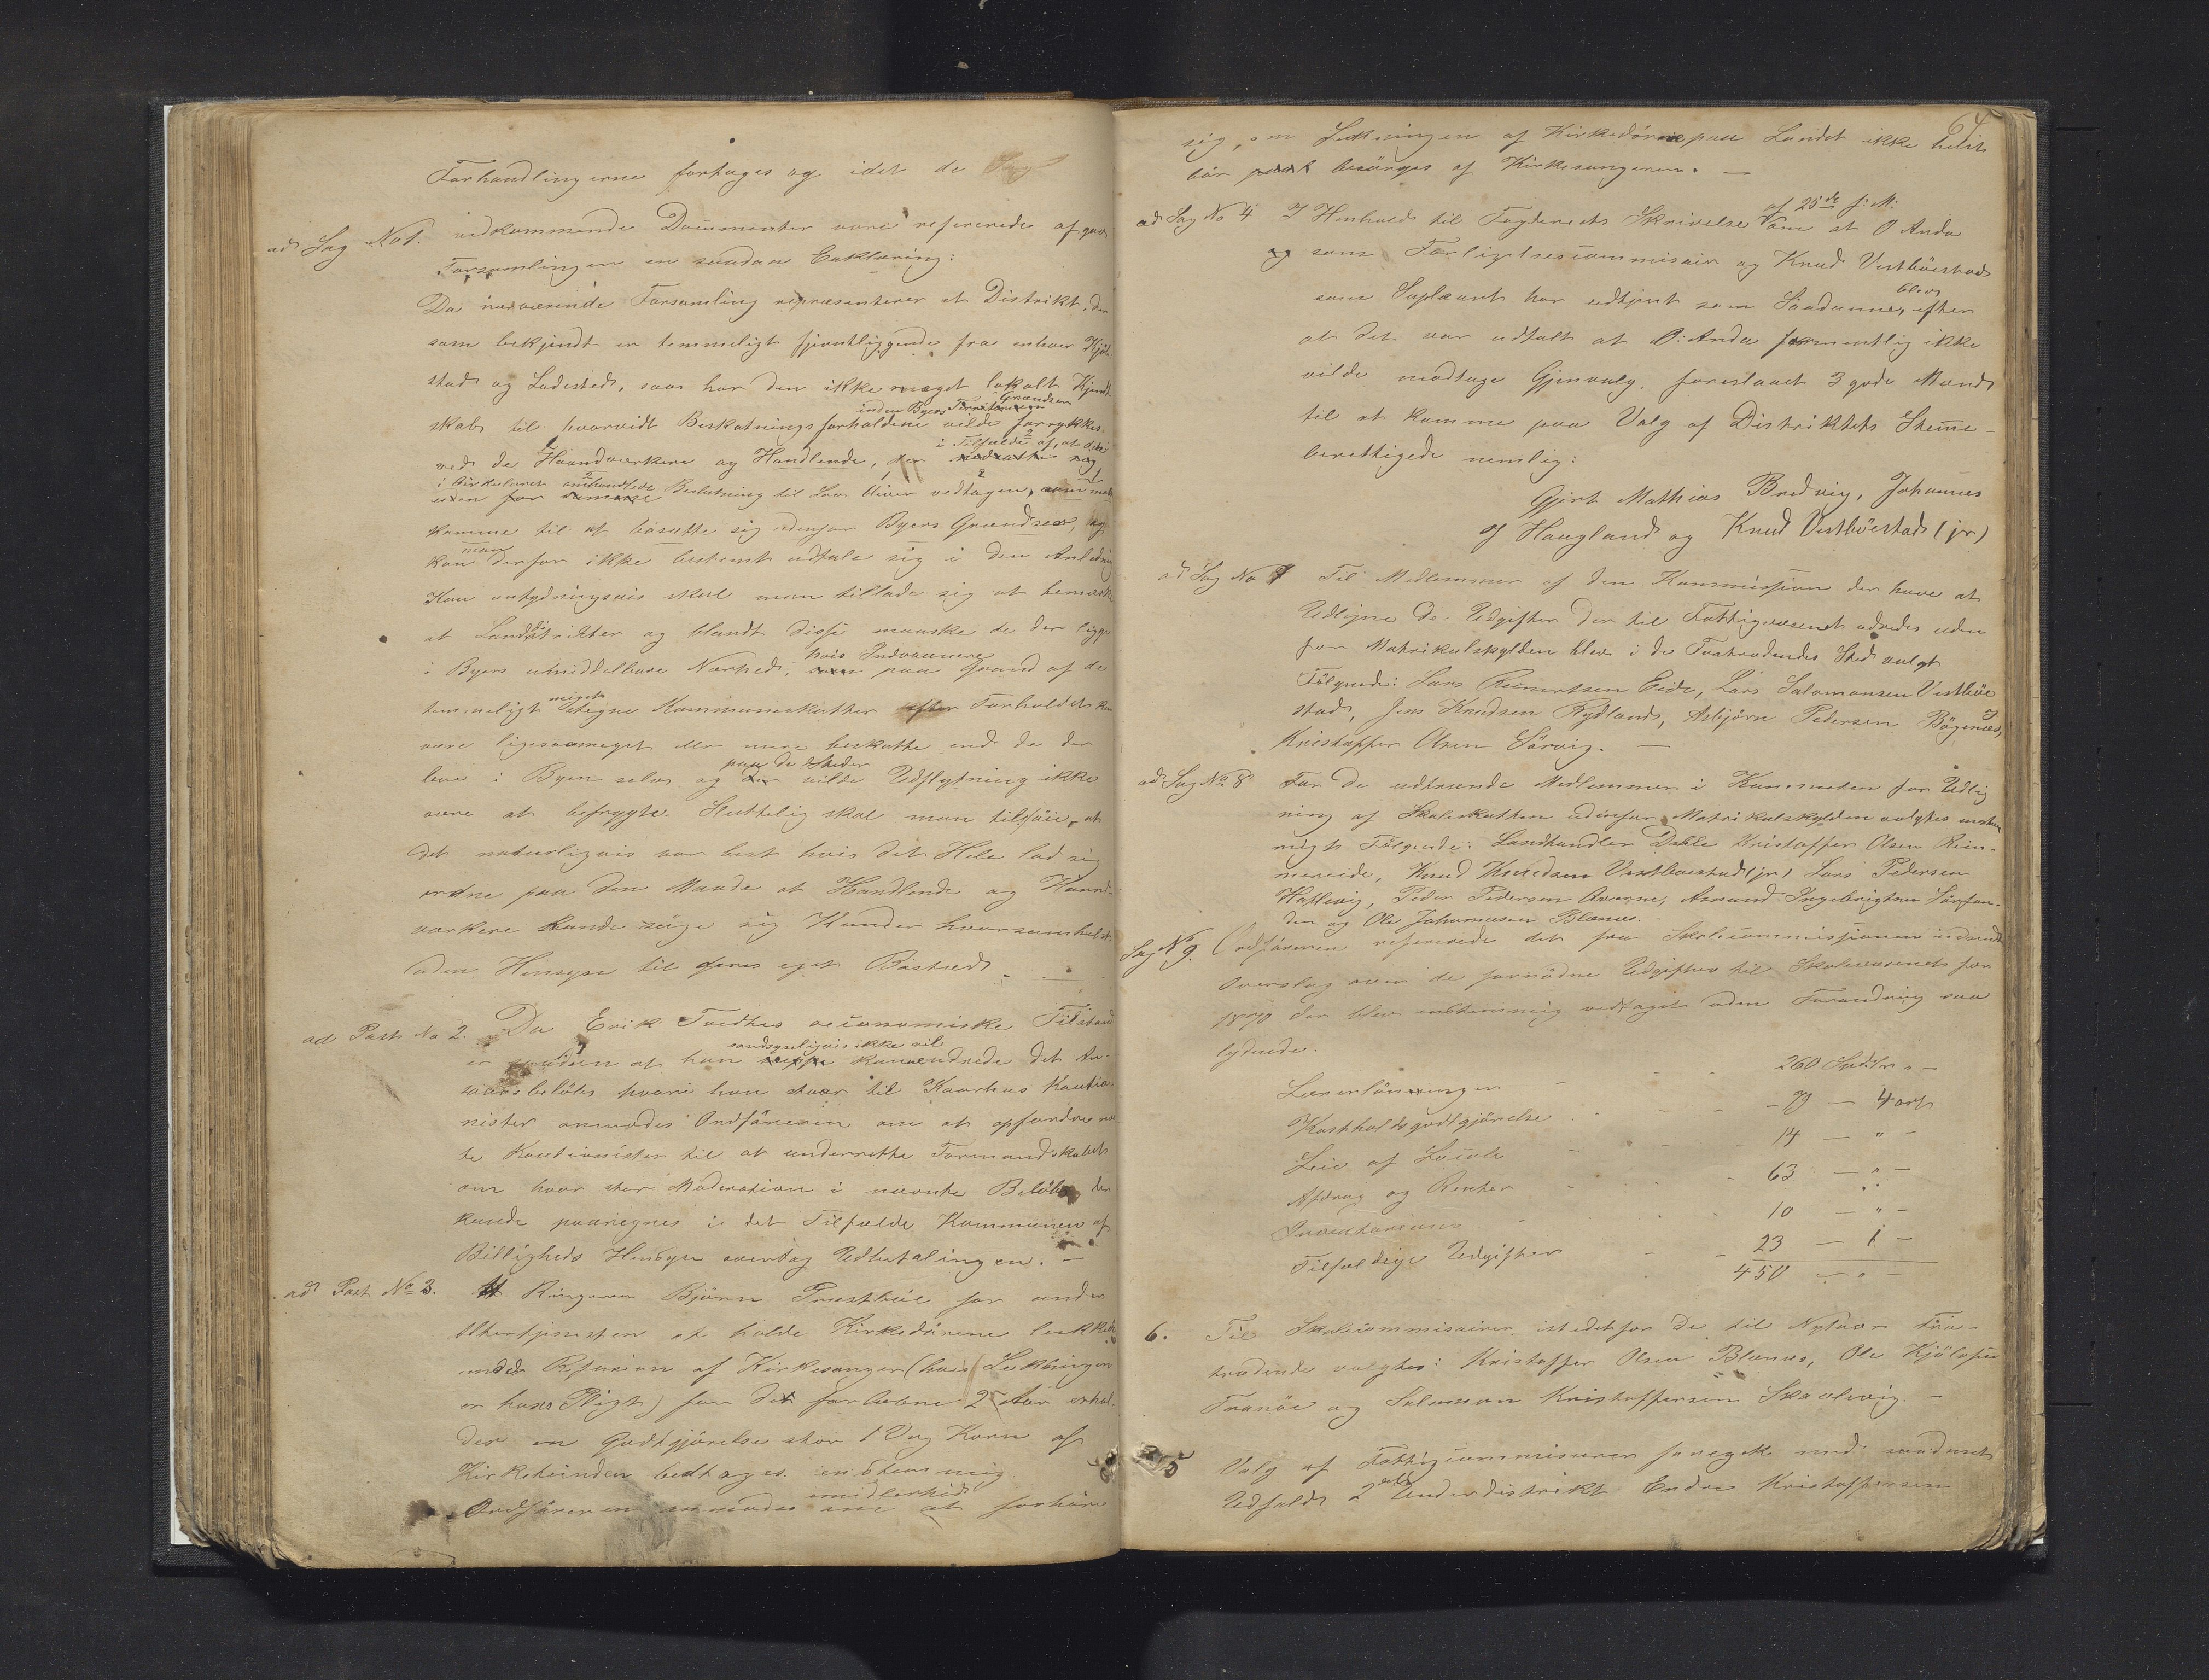 Forhandlingerne fortages og idet de Sag
ad Sag No 1. vedkommende Documenter vare refererede afgav
Forsamlingen en saadan Erklæring:
Da nærværende Forsamling repræsenterer et Distrikt, der
som bekjendt er temmeligt fjerntliggende fra enhver Kjöb-
stad og Ladested, saa har den ikke noget lokalt Kjend-
skab til hvorvidt Beskatningsforholdene inden Byens Grændser vilde forrykkes
ved de Haandværkere og Handlende, der i Tilfælde af, at den
i Cirkulæret omhandlede Beslutning til Lov bliver vedtagen,
komme til at bosætte sig udenfor Byens Grændser, og
kan man derfor ikke bestemt udtale sig i den Anledning
Kun antydningsvis skal man tillade sig at bemærke
at Landdistrikter og blandt disse maaske de der ligge
i Byens umiddelbare Nærhed, hvis Indvaanere paa Grund af de
temmeligt meget stegne Kommuneskatter efter Forholdet kan
være ligesaameget eller mere beskatte end de der
leve i Byen selv og paa de Steder vilde Udflytning ikke
være at befrygte. Sluttelig skal man tilföie, at
det naturligvis var best hvis det Hele lod sig
ordne paa den Maade at Handlende og Haand-
værkere kunde söge sig Kunder hvorsomhelst
uden Hensyn til deres eget Bosted. —
ad Post No 2. Da Erik Tvedtes oeconomiske Tilstand
er saadan at han sandsynligvis ikke vil kunne udrede det An-
svarsbelöb hvori han staar til Kaarhus Kautio-
nister anmodes Ordföreren om at opfordre næ
te Kautionister til at underrette Formandskabet
om hvor stor Moderation i nævnte Belöb der
kunde paaregnes i det Tilfælde Kommunen af
Billigheds Hensyn overtog Udbetalingen. —
ad Post No 3. At Ringeren Björn Prestböe for under
Altertjenesten at holde Kirkedörene lukkede
mod Refusion af Kirkesanger (hvis Lukningen
er hans Pligt) for det forløbne 2 Aar erhol-
der en Godtgjörelse stor 1 Vog Korn af
Kirketienden vedtages enstemmig
Ordföreren anmodes imidlertid om at forhöre
64
sig, om Lukningen af Kirkedörene paa Landet ikke helst
bör besörges af Kirkesangeren. —
ad Sag No 4 I Henhold til Fogderets Skrivelse af 25de f: M: om at O Anda
og som Forligelsescommisair og Knud Vestböestad
som Suplæant har udtjent som Saadanne, blev efter
at det var udtalt at O: Anda formentlig ikke
vilde modtage Gjenvalg, foreslaaet 3 gode Mænd
til at komme paa Valg af Distriktets Stemme-
berettigede nemlig:
Gjert Mathias Bredvig, Johannes
J Haugland og Knud Vestböestad (jr)
ad Sag No 7 Til Medlemmer af den Kommission der have at
Udligne de Udgifter der til Fattigvæsenet udredes uden
for Matrikulskylden blev i de Fratrædendes Sted valgt
Fölgende: Lars Reinertsen Eide, Lars Salomonsen Vestböe
stad, Jens Knudsen Rydland, Asbjörn Pedersen Bögenæs,
Kristoffer Olsen Sörvig. —
ad Sag No 8 For de udtrædende Medlemmer i Kommiteen for Udlig
ning af Skoleskatten udenfor Matrikulskylden valgtes enstem
migt Fölgende: Landhandler Dahle Kristoffer Olsen Rein-
mereide, Knud Knudsen Vestboestad (jr) Lars Pedersen
Hoflevig, Peder Pedersen Avarne, Amund Ingebrigtsen Sörfon-
den og Ole Johannesen Blænes. —
Sag No 9. Ordföreren refererede det fra Skolecommissionen indsendte
Overslag over de fornödne Udgifter til Skolevæsenet for
1870 der blev enstemmig vedtaget uden Forandring saa
lydende.
Lærerlönninger - - - 260 Spdlr „ —
Kostholdsgodtgjörelse - - - 79 — 4 ort
Leie af Locale - - - 14 — „ —
Afdrag og Renter - - - 63 — „ —
Inventarium - - - 10 — „ —
Tilfældige Udgifter - - 23 — 1 —
450 — „ —
6. Til Skolecommisairer istedetfor de til Nytaar fra-
trædende valgtes: Kristoffer Olsen Blænes, Ole Kjölsen
Tranöe og Salomon Kristoffersen Skaalevig. —
5 Valg af Fattigcommisairer foregik med saadant
Udfald 2det Underdistrikt Endre Kristoffersen